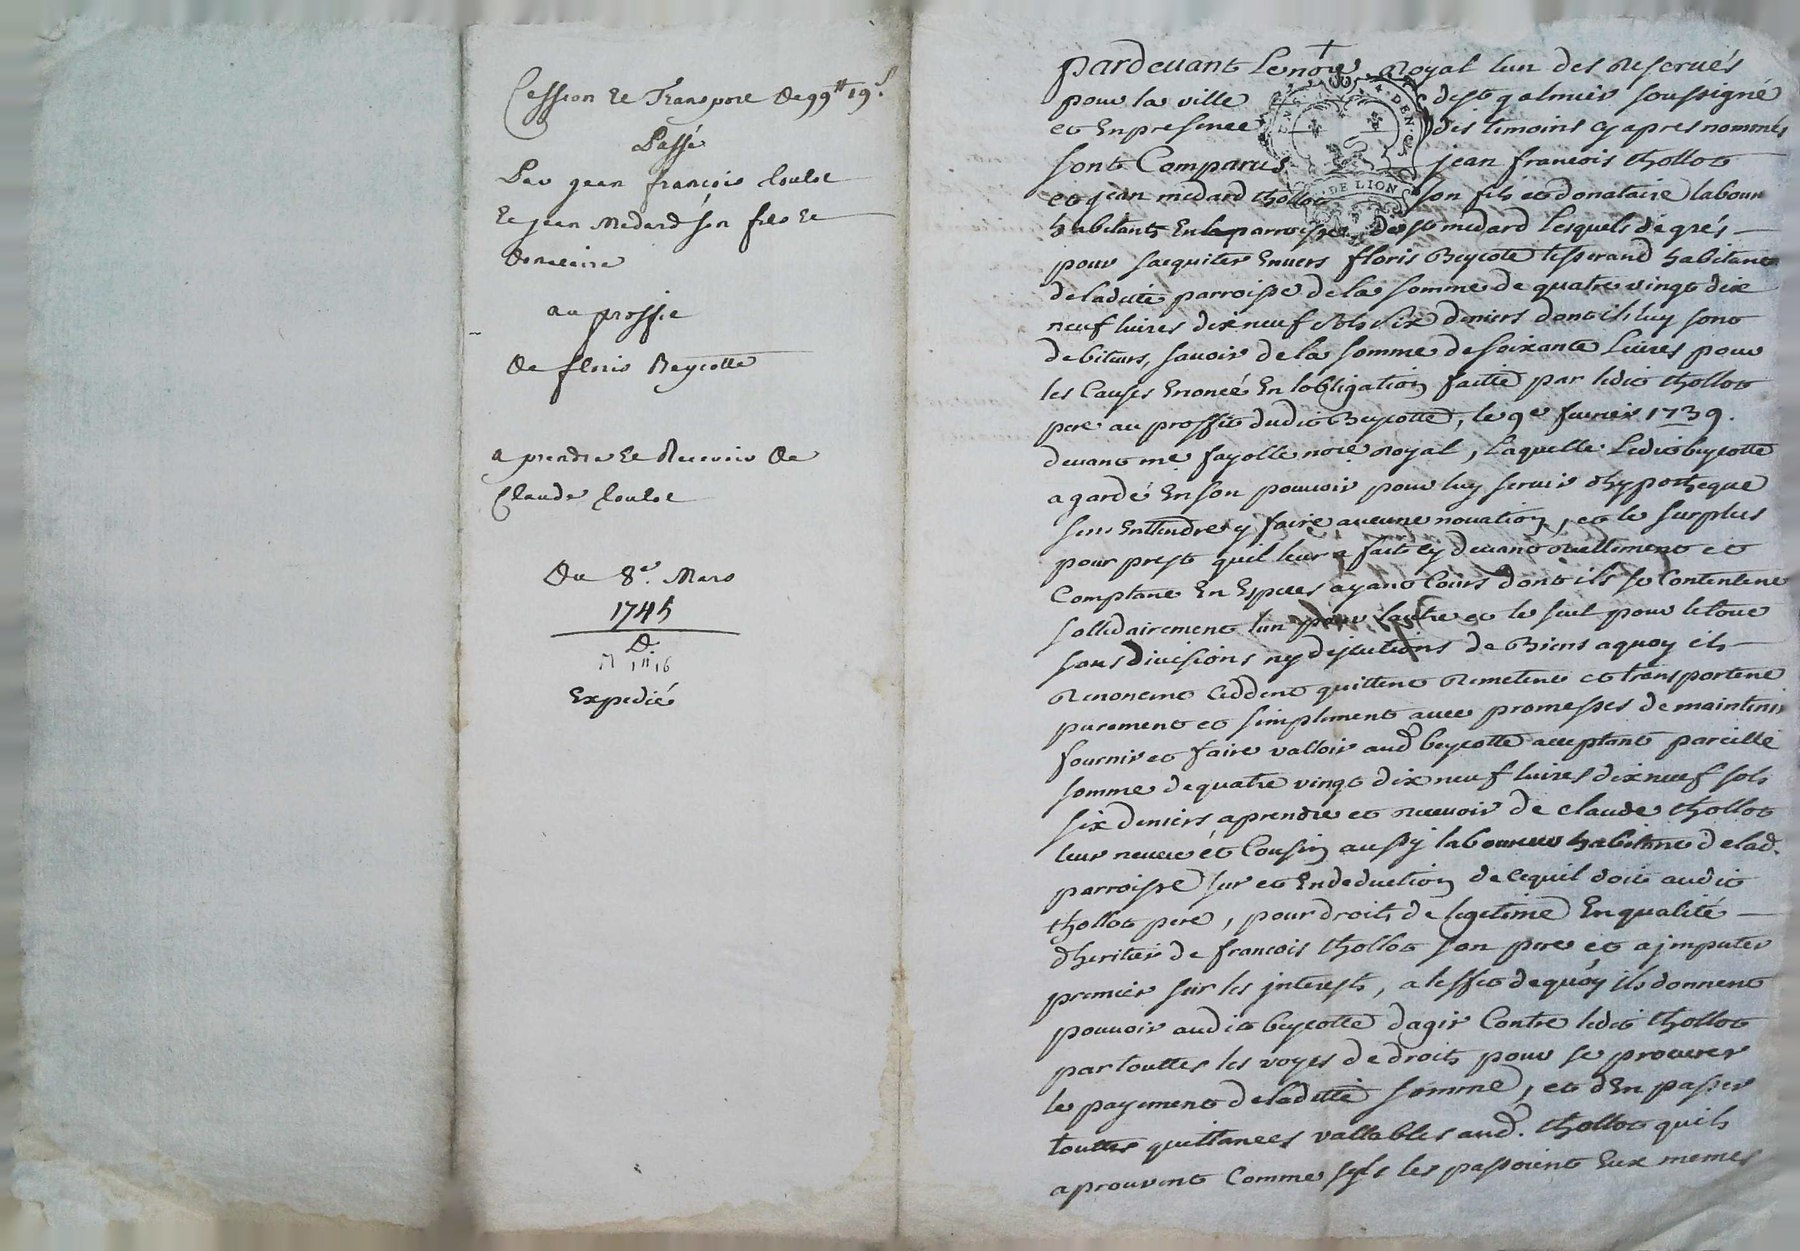 Cession et Transport de 99# 19s
Passé
Par jean françois toulot
et jean Medard son fils et
donataire
au proffit
de floris Beycotte
a prendre et Recevoir de
Claude toulot
Du 8e. Mars
1745
D.
1# 16
Expedié
pardevant Le nore Royal lun des Reservés
pour la ville de st galmier soussigné
et En presence des temoins cy apres nommés
sont Comparus jean francois thollot
et jean medard thollot son fils et donataire labour
habitants En la parroisse de st medard Lesquels de grés
pour sacquiter Envers floris Beycote tisserand habitant
de laditte parroisse de la somme de quatre vingt dix
neuf livres dix neuf sols six deniers dont ils luy sont
debiteurs, savoir de la somme de soixante livres pour
les Causes Enoncé En lobligation faitte par ledit thollot
pere au proffit dudit Beycotte, le 9e fevrier 1739.
devant me fayolle nore royal, laquelle Ledit beycotte
a gardé En son pouvoir pour luy servir dhypotheque
sans Enttendre y faire aucune novation, et le surplus
pour prest quil leur a fait cy devant réellement et
Comptant En Especes ayant Cours dont ils se Contentent
sollidairement lun pour lautre et le seul pour le tout
sans divisions ny discutions de Biens a quoy ils
Renoncent Ceddent quittent Remetent et transportent
purement et simplement avec promesses de maintenir
fournir et faire valloir aud beycotte acceptant pareille
somme de quatre vingt dix neuf livres dix neuf sols
six deniers aprendre et recevoir de claude thollot
leur neveu et Cousin aussy laboureur habitant de lad.
parroisse sur et En deduction de ce quil doit audit
thollot pere, pour droits de legitime En qualité
dheritier de francois thollot son pere et a jmputer
premier sur les jnterests, a leffet de quoy ils donnent
pouvoir audit beycotte dagir Contre ledit thollot
par touttes les voyes de droits pour se procurer
le payement de laditte somme, et dEn passer
touttes quittances vallables aud. thollot quils
aprouvent Comme sils les passoient Eux memes